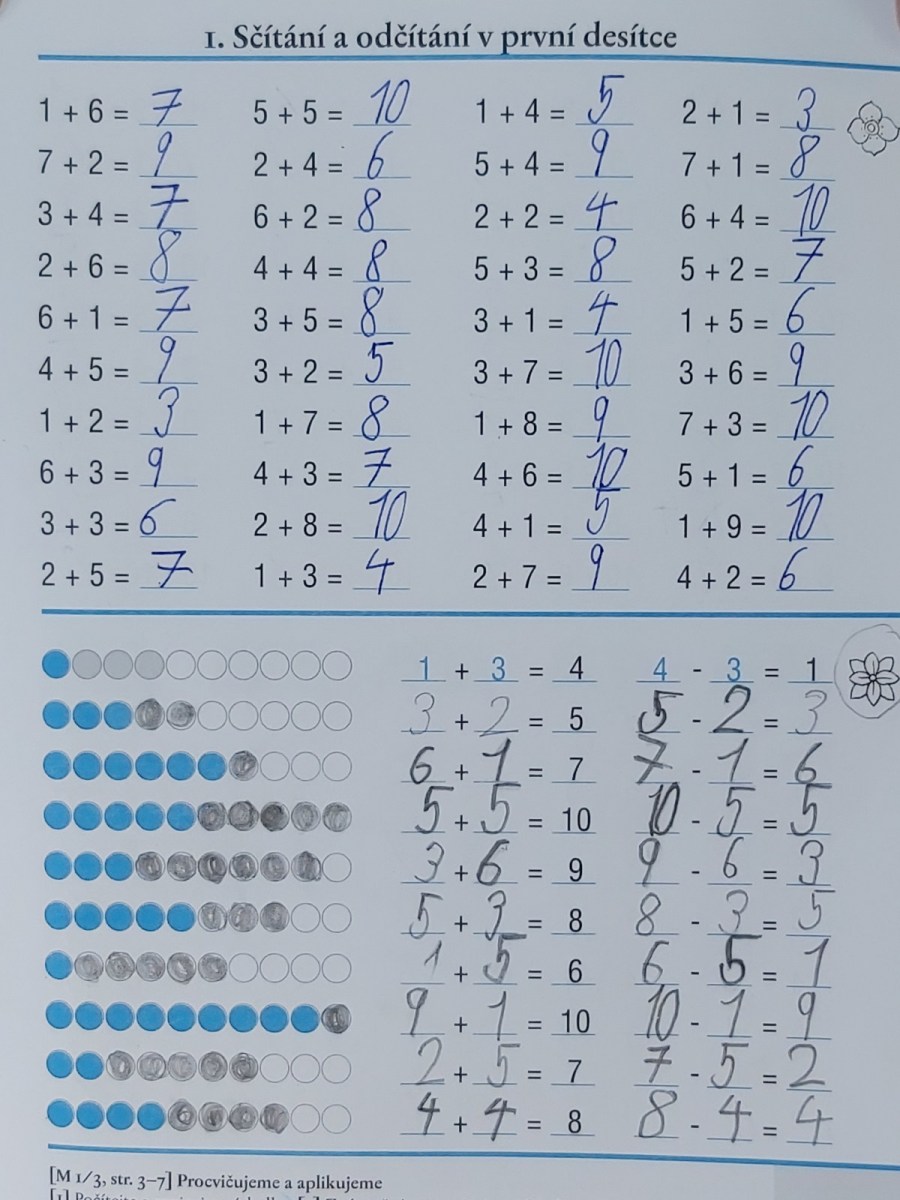 1. Sčítání a odčítání v první desítce
1 + 6 = 7 5 + 5 = 10 1 + 4 = 5 2 + 1 = 3
7 + 2 = 9 2 + 4 = 6 5 + 4 = 9 7 + 1 = 8
3 + 4 = 7 6 + 2 = 8 2 + 2 = 4 6 + 4 = 10
2 + 6 = 8 4 + 4 = 8 5 + 3 = 8 5 + 2 = 7
6 + 1 = 7 3 + 5 = 8 3 + 1 = 4 1 + 5 = 6
4 + 5 = 9 3 + 2 = 5 3 + 7 = 10 3 + 6 = 9
1 + 2 = 3 1 + 7 = 8 1 + 8 = 9 7 + 3 = 10
6 + 3 = 9 4 + 3 = 7 4 + 6 = 10 5 + 1 = 6
3 + 3 = 6 2 + 8 = 10 4 + 1 = 5 1 + 9 = 10
2 + 5 = 7 1 + 3 = 4 2 + 7 = 9 4 + 2 = 6
1 + 3 = 4 4 - 3 = 1
3 + 2 = 5 5 - 2 = 3
6 + 1 = 7 7 - 1 = 6
5 + 5 = 10 10 - 5 = 5
3 + 6 = 9 9 - 6 = 3
5 + 3 = 8 8 - 3 = 5
1 + 5 = 6 6 - 5 = 1
9 + 1 = 10 10 - 1 = 9
2 + 5 = 7 7 - 5 = 2
4 + 4 = 8 8 - 4 = 4
[M 1/3, str. 3–7] Procvičujeme a aplikujeme